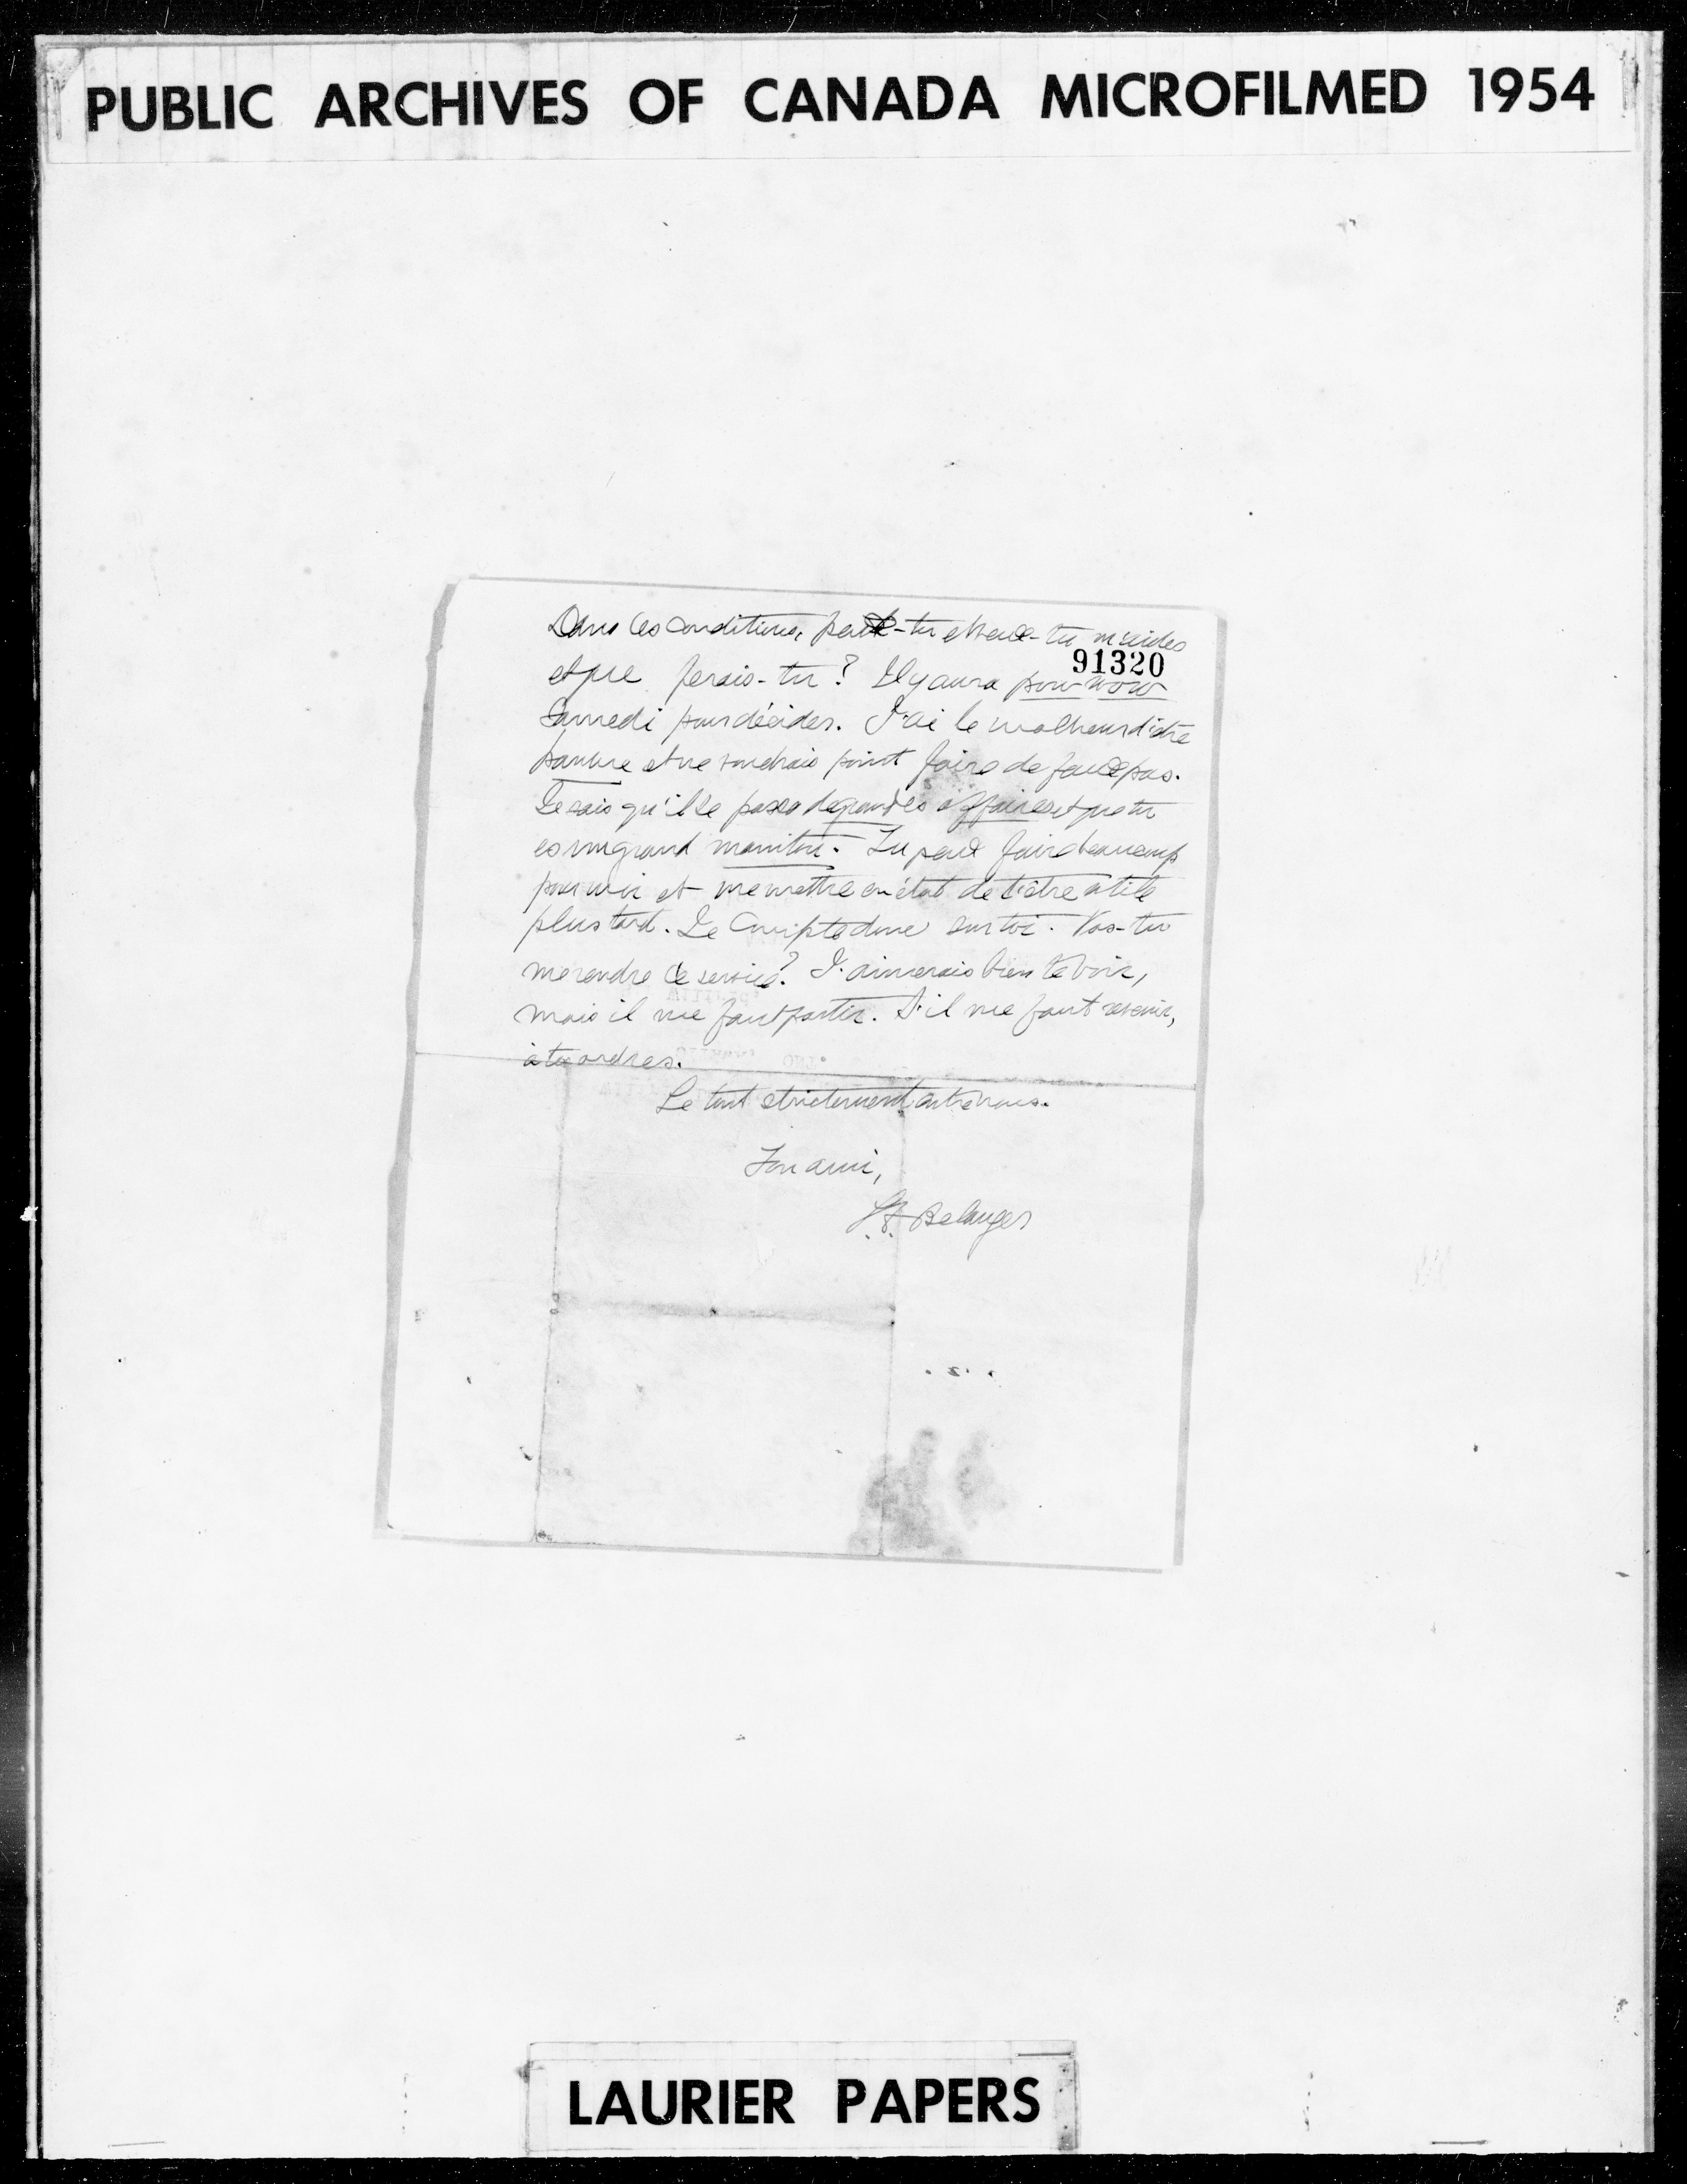 PUBLIC ARCHIVES OF CANADA MICROFILMED 1954
Dans ces conditions, peux-tu et veux-tu m'aider
91320
et que ferais-tu? Il y aura pow-wow
Samedi pour décider. J'ai le malheur d'être
pauvre et ne voudrais point faire de faux pas.
Je sais qu'il se passe de grandes affaires et que tu
es un grand manitou. Tu peux faire beaucoup
pour moi et me mettre en état de t'être utile
plus tard. Je compte donc sur toi. Vas-tu
me rendre ce service? J'aimerais bien te voir,
mais il me faut partir. S'il me faut revenir,
à tes ordres.
Le tout strictement entre nous.
Ton ami,
Belanger
LAURIER PAPERS